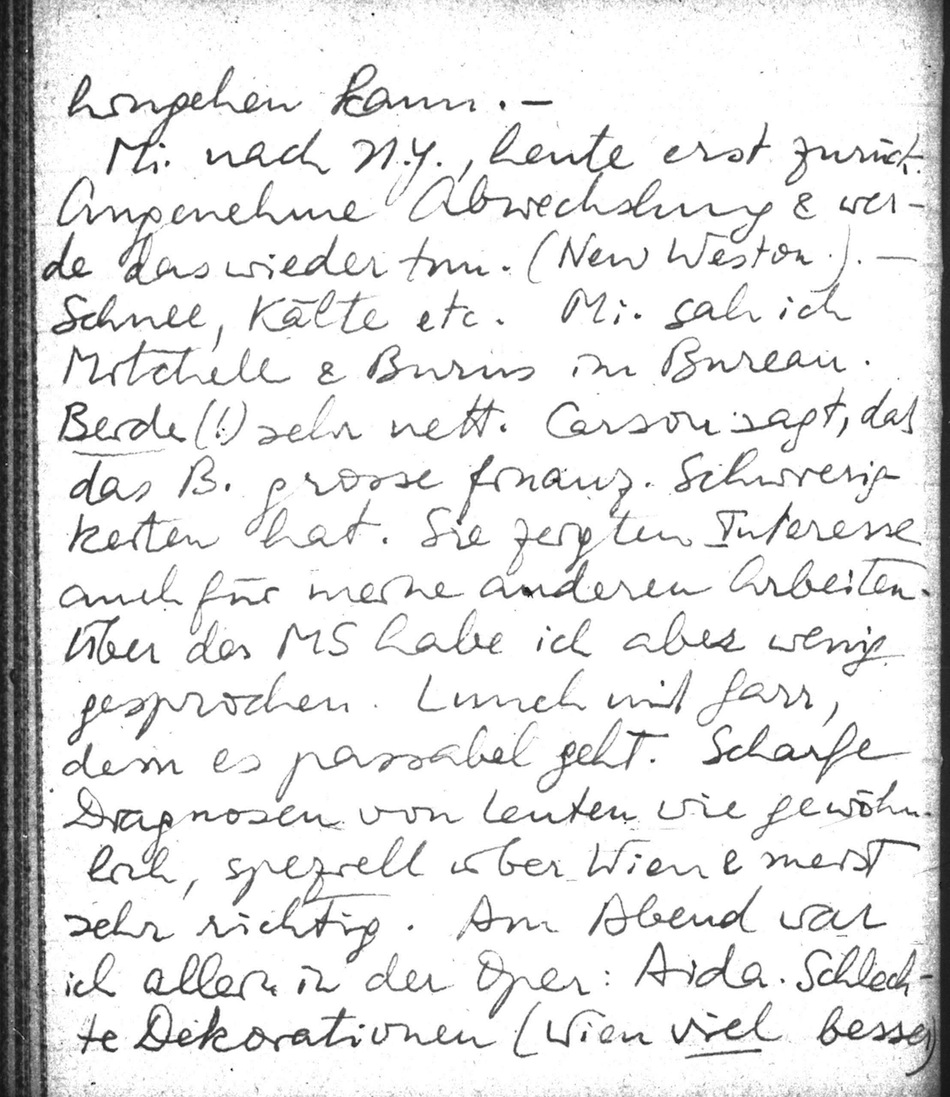 hingehen kann. —
Mi. nach N.Y., heute erst zurück.
Angenehme Abwechslung & wer-
de das wieder tun. (New Weston.). —
Schnee, Kälte etc. Mi. sah ich
Mitchell & Burns im Bureau.
Beide (!) sehr nett. Carson sagt, dass
das B. grosse finanz. Schwierig-
keiten hat. Sie zeigten Interesse
auch für meine anderen Arbeiten.
Über das MS habe ich aber wenig
gesprochen. Lunch mit Garr,
dem es passabel geht. Scharfe
Diagnosen von Leuten wie gewöhn-
lich, speziell über Wien & meist
sehr richtig. Am Abend war
ich allein in der Oper: Aida. Schlech-
te Dekorationen (Wien viel besser)